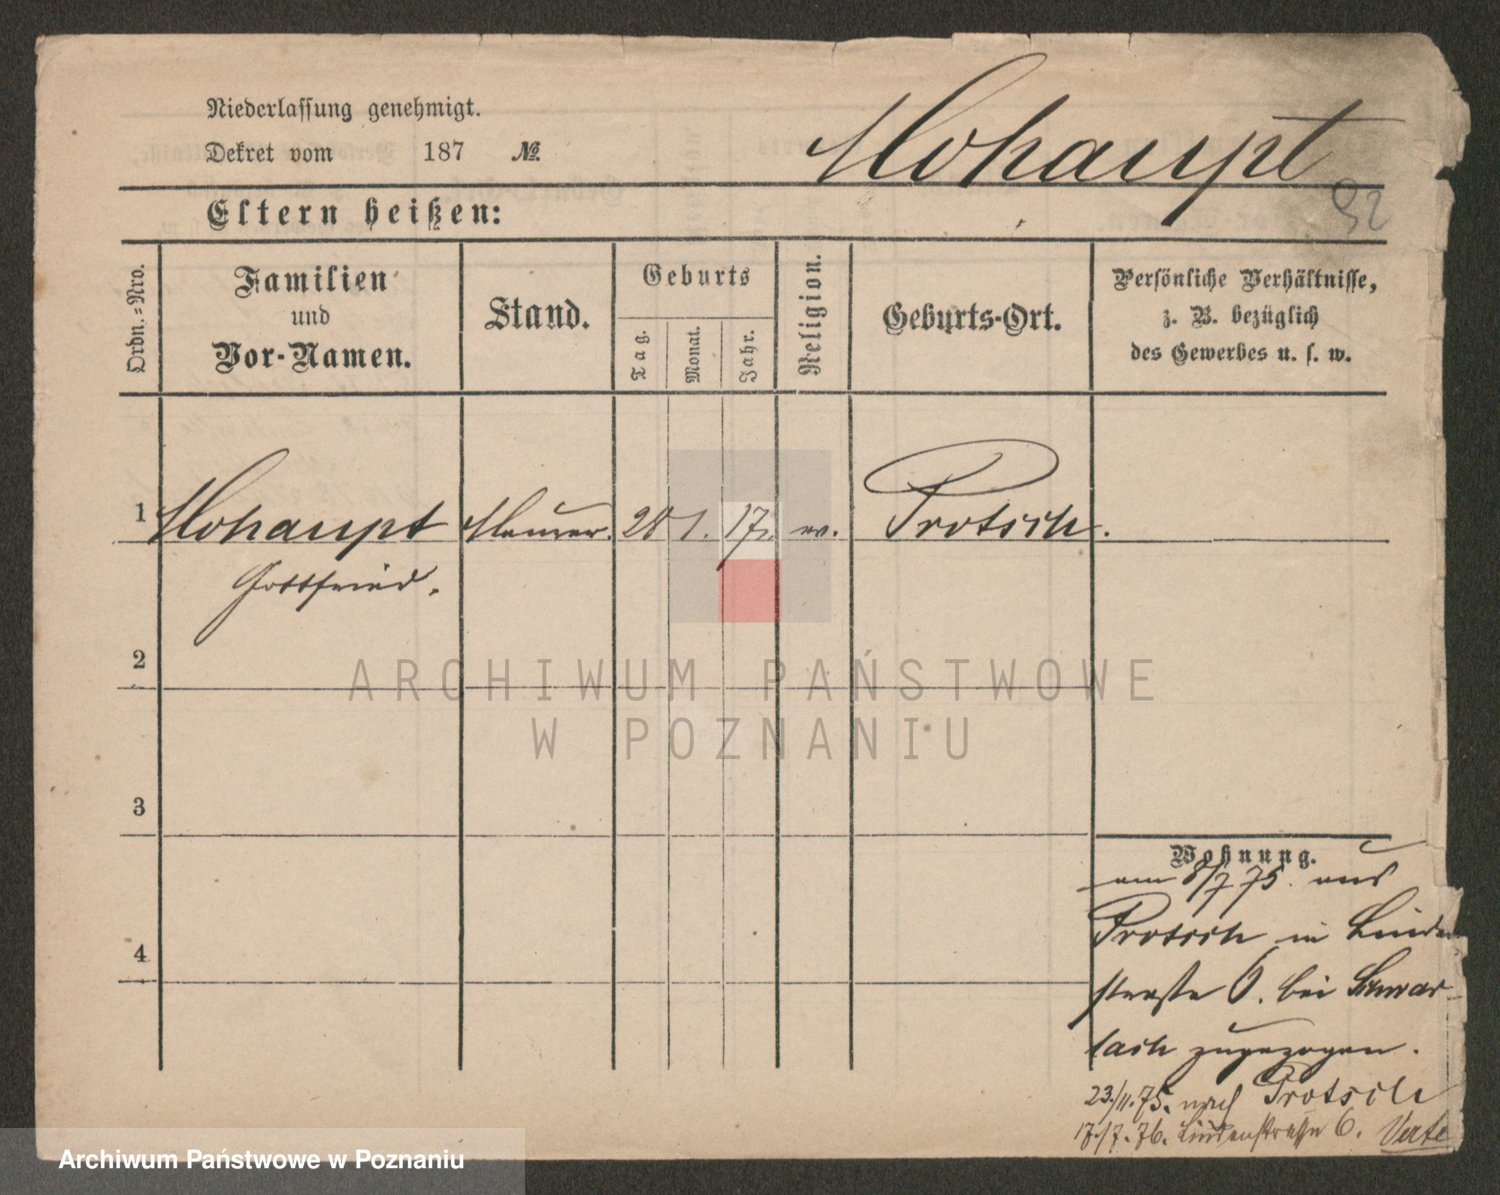 Niederlassung genehmigt.
Dekret vom 187 №
Mohaupt
92
Eltern heißen:
Ordn.-Nro.
Familien
und
Vor-Namen.
Stand.
Geburts
Tag.
Monat.
Jahr.
Religion.
Geburts-Ort.
Persönliche Verhältnisse,
z. B. bezüglich
des Gewerbes u. s. w.
1 Mohaupt Maurer. 28 1. 17. ev. Protsch.
Gottfried.
2
ARCHIWUM PAŃSTWOWE
W POZNANIU
3
Wohnung.
am 8/7 75. aus
Protsch in Linden
straße 6. bei
zugezogen.
23./11. 75. nach Protsch
17./7. 76. Lindenstraße 6. Verte
4
Archiwum Państwowe w Poznaniu